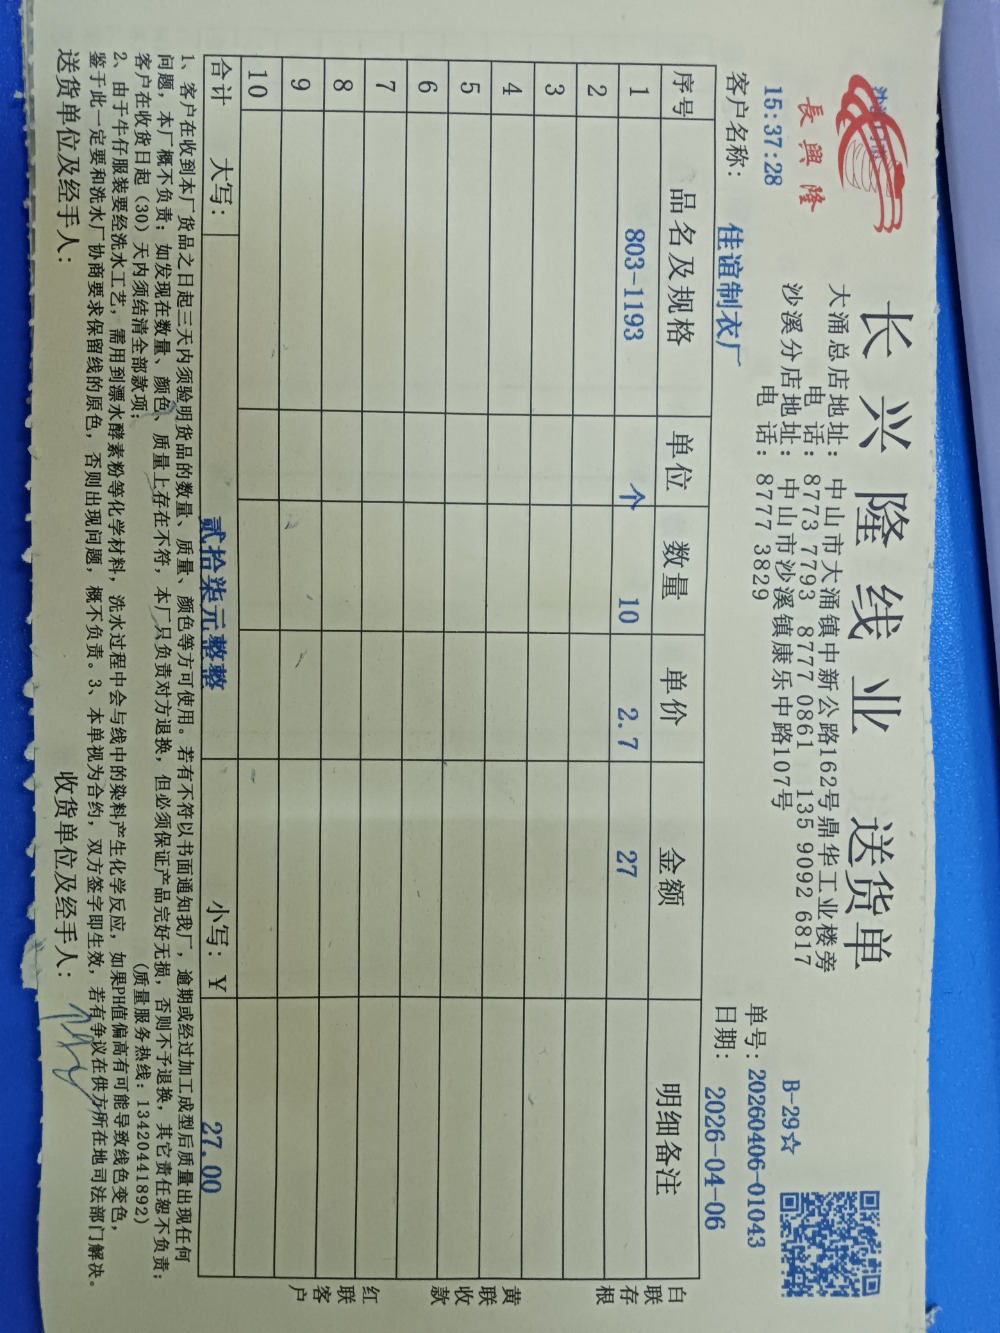 長興隆
长兴隆线业 送货单
大涌总店地址:中山市大涌镇中新公路162号鼎华工业楼旁
电 话:8773 7793 8777 0861 135 9092 6817
沙溪分店地址:中山市沙溪镇康乐中路107号
电 话:8777 3829
15:37:28
B-29☆
单号:20260406-01043
客户名称: 佳谊制衣厂
日期: 2026-04-06
序号 品名及规格 单位 数量 单价 金额 明细备注
1 803-1193 个 10 2.7 27
2
3
4
5
6
7
8
9
10
合计 大写: 贰拾柒元整整 小写:¥ 27.00
白联存根
黄联收款
红联客户
1、客户在收到本厂货品之日起三天内须验明货品的数量、质量、颜色等方可使用。若有不符以书面通知我厂,逾期或经过加工成型后质量出现任何
问题,本厂概不负责;如发现在数量、颜色、质量上存在不符,本厂只负责对方退换,但必须保证产品完好无损,否则不予退换,其它责任恕不负责;
客户在收货日起(30)天内须结清全部款项; (质量服务热线:13420441892)
2、由于牛仔服装要经洗水工艺,需用到漂水酵素粉等化学材料,洗水过程中会与线中的染料产生化学反应,如果PH值偏高有可能导致线色变色,
鉴于此一定要和洗水厂协商要求保留线的原色,否则出现问题,概不负责。3、本单视为合约,双方签字即生效,若有争议在供方所在地司法部门解决。
送货单位及经手人: 收货单位及经手人: